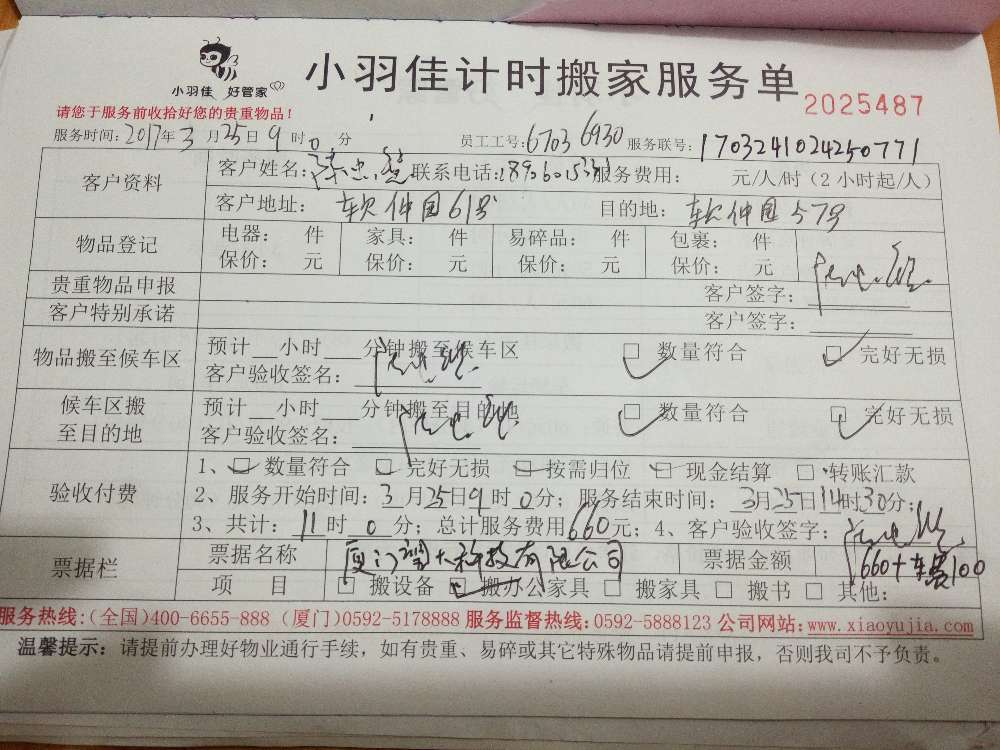 小羽佳 好管家
小羽佳计时搬家服务单 2025487
请您于服务前收拾好您的贵重物品!
服务时间: 2017年3月25日9时0分 员工工号: 6703 6930 服务联号: 1703241024250771
客户资料 客户姓名: 联系电话: 服务费用: 元/人/时 (2小时起/人)
客户地址: 软件园61号 目的地: 软件园57号
物品登记 电器: 件 家具: 件 易碎品: 件 包裹: 件
保价: 元 保价: 元 保价: 元 保价: 元
贵重物品申报 客户签字:
客户特别承诺 客户签字:
物品搬至候车区 预计__小时___分钟搬至候车区 数量符合 完好无损
客户验收签名:
候车区搬至目的地 预计__小时___分钟搬至目的地 数量符合 完好无损
客户验收签名:
验收付费 1、数量符合 完好无损 按需归位 现金结算 转账汇款
2、服务开始时间: 3月25日9时0分; 服务结束时间: 3月25日14时30分;
3、共计: 11时0分; 总计服务费用660元; 4、客户验收签字:
票据栏 票据名称 厦门 科技有限公司 票据金额 660+车费100
项 目 搬设备 搬办公家具 搬家具 搬书 其他:
服务热线:(全国)400-6655-888 (厦门)0592-5178888 服务监督热线:0592-5888123 公司网站:www.xiaoyujia.com
温馨提示: 请提前办理好物业通行手续，如有贵重、易碎或其它特殊物品请提前申报，否则我司不予负责。